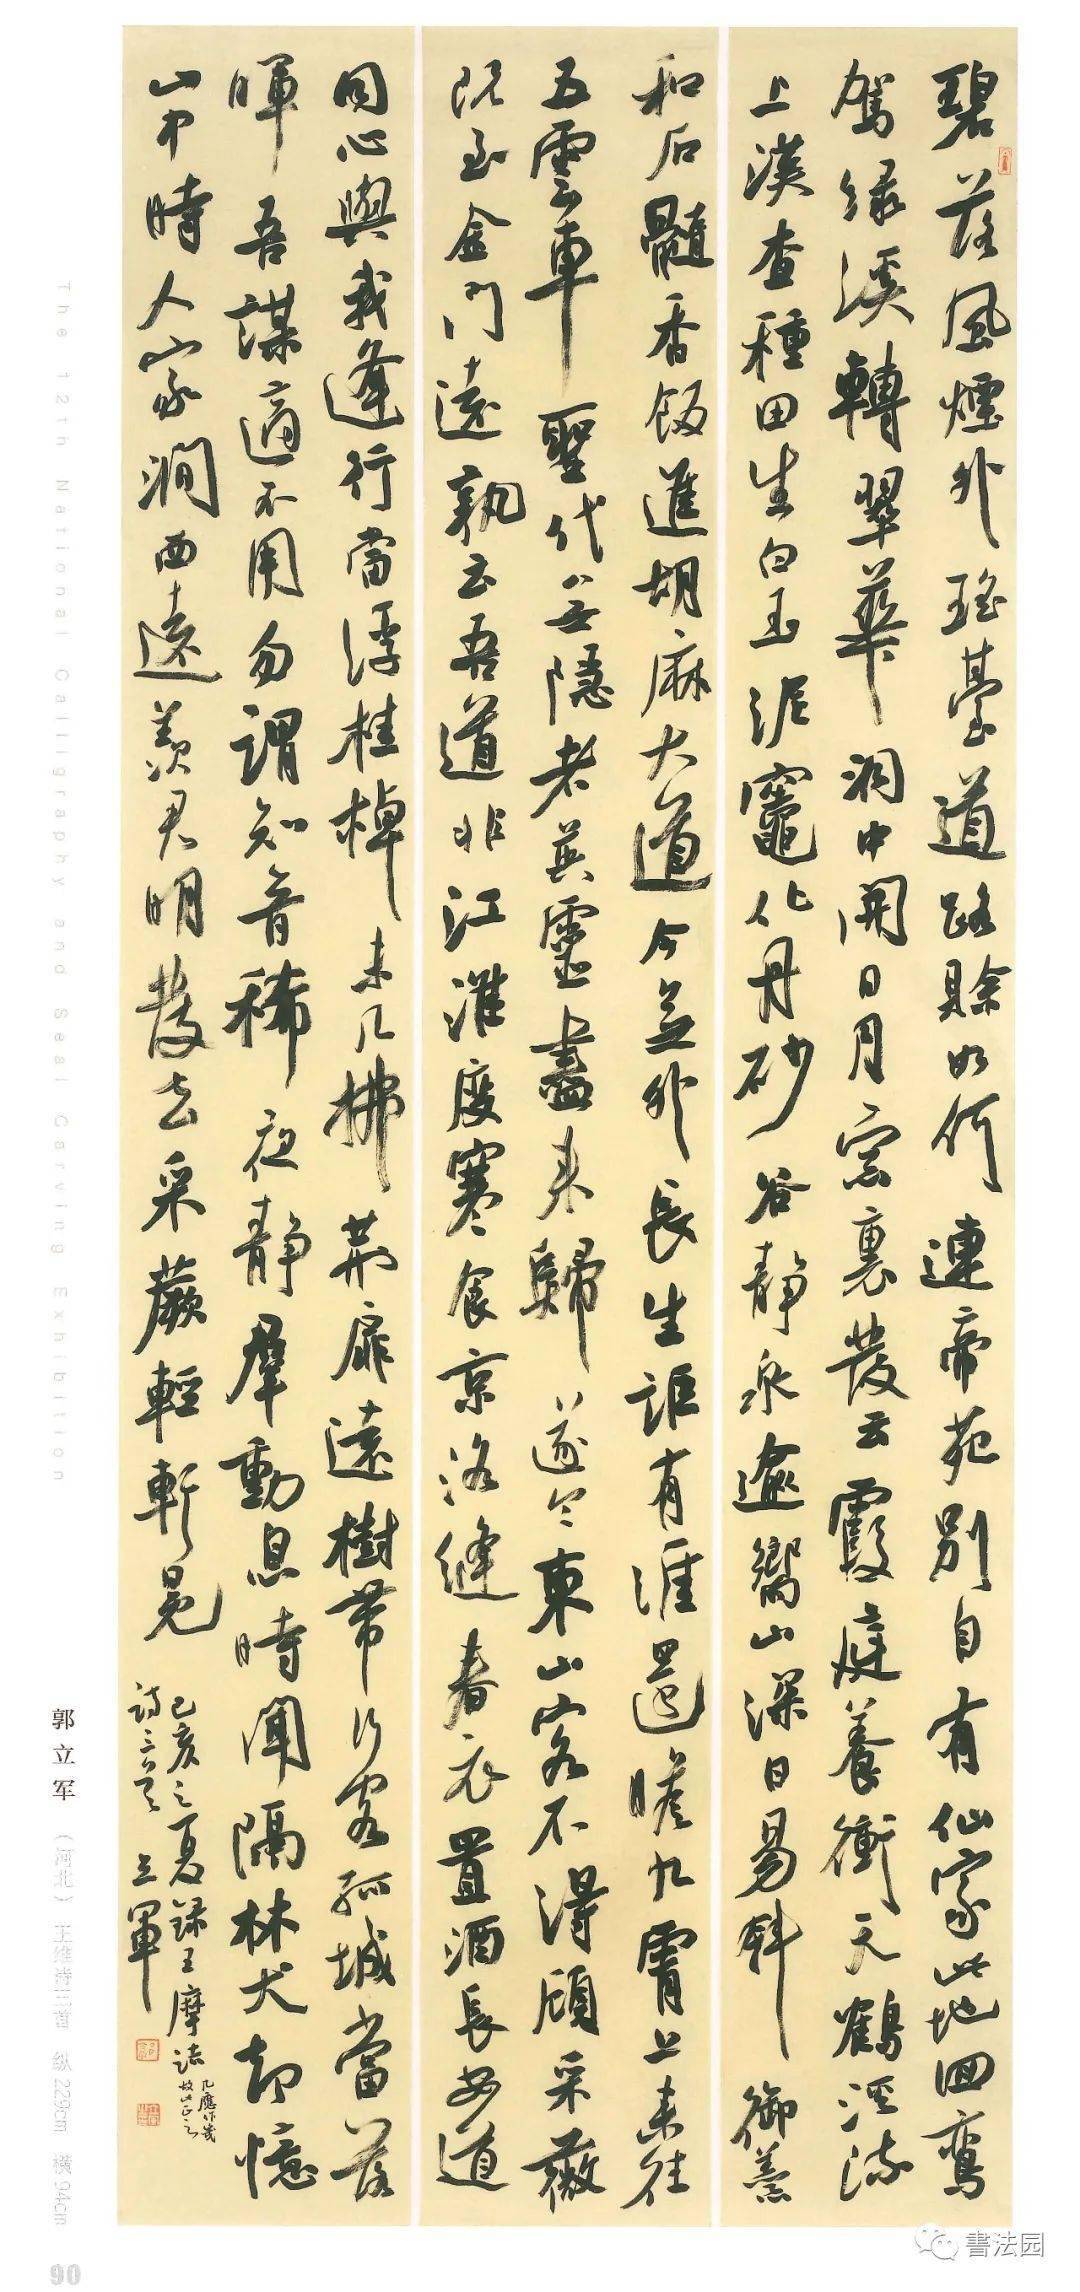 碧落風煙外瑤臺道路賒如何連帝苑別自有仙家此地回鸞
駕緣溪轉翠華洞中開日月窗裏發云霞庭養衝天鶴溪流
上漢查種田生白玉泥竈化丹砂谷靜泉逾響山深日易斜御羹
和石髓香飯進胡麻大道今無外長生詎有涯還瞻九霄上來往
五雲車聖代無隱者英靈盡來歸遂令東山客不得顧采薇
既至金門遠孰云吾道非江淮度寒食京洛縫春衣置酒長安道
同心與我違行當浮桂棹未几拂荊扉遠樹帶行客孤城當落
暉吾謀適不用勿謂知音稀夜靜群動息時聞隔林犬却憶
山中時人家澗西遠羨君明發去采蕨輕軒冕
己亥之夏錄王摩詰
詩三首 立軍
几應作幾
故此正之
The 12th National Calligraphy and Seal Carving Exhibition
郭立军 （河北） 王维诗三首 纵229cm 横94cm
90
書法园